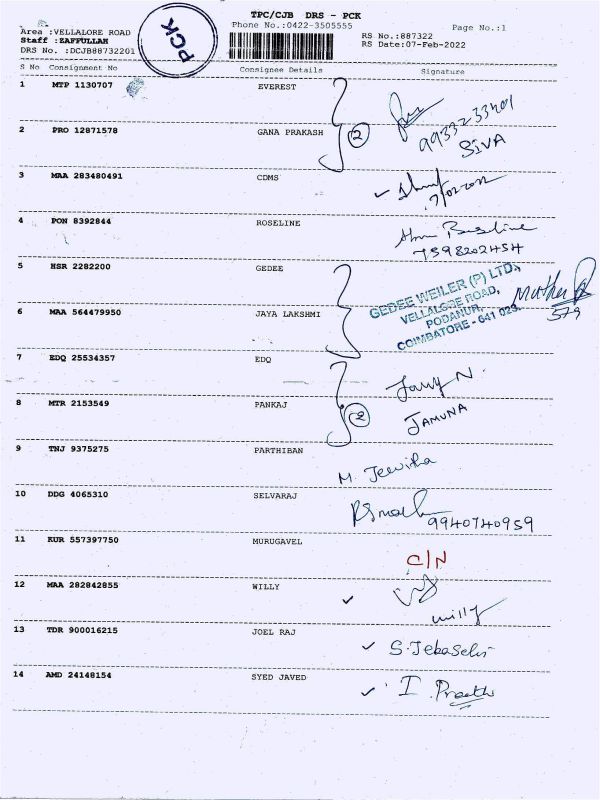 TPC/CJB DRS - PCK
Phone No.:0422-3505555
Page No.:1
Area :VELLALORE ROAD
Staff :ZAFFULLAH
DRS No. :DCJB88732201
PCK
RS No.:887322
RS Date:07-Feb-2022
S No Consignment No Consignee Details Signature
1 MTP 1130707 EVEREST
9933233401
SIVA
2 PRO 12871578 GANA PRAKASH
2
3 MAA 283480491 CDMS
7/02/2022
4 PON 8392844 ROSELINE
Roseline
7598202454
5 HSR 2282200 GEDEE
GEDEE WEILER (P) LTD.,
VELLALORE ROAD,
PODANUR,
COIMBATORE - 641 023.
579
6 MAA 564479950 JAYA LAKSHMI
7 EDQ 25534357 EDQ
8 MTR 2153549 PANKAJ
2
JAMUNA
9 TNJ 9375275 PARTHIBAN
M. Jeevitha
10 DDG 4065310 SELVARAJ
9940740959
11 KUR 557397750 MURUGAVEL
C/N
12 MAA 282842855 WILLY
willy
13 TDR 900016215 JOEL RAJ
S. Jebaselvi
14 AMD 24148154 SYED JAVED
I. Preethi